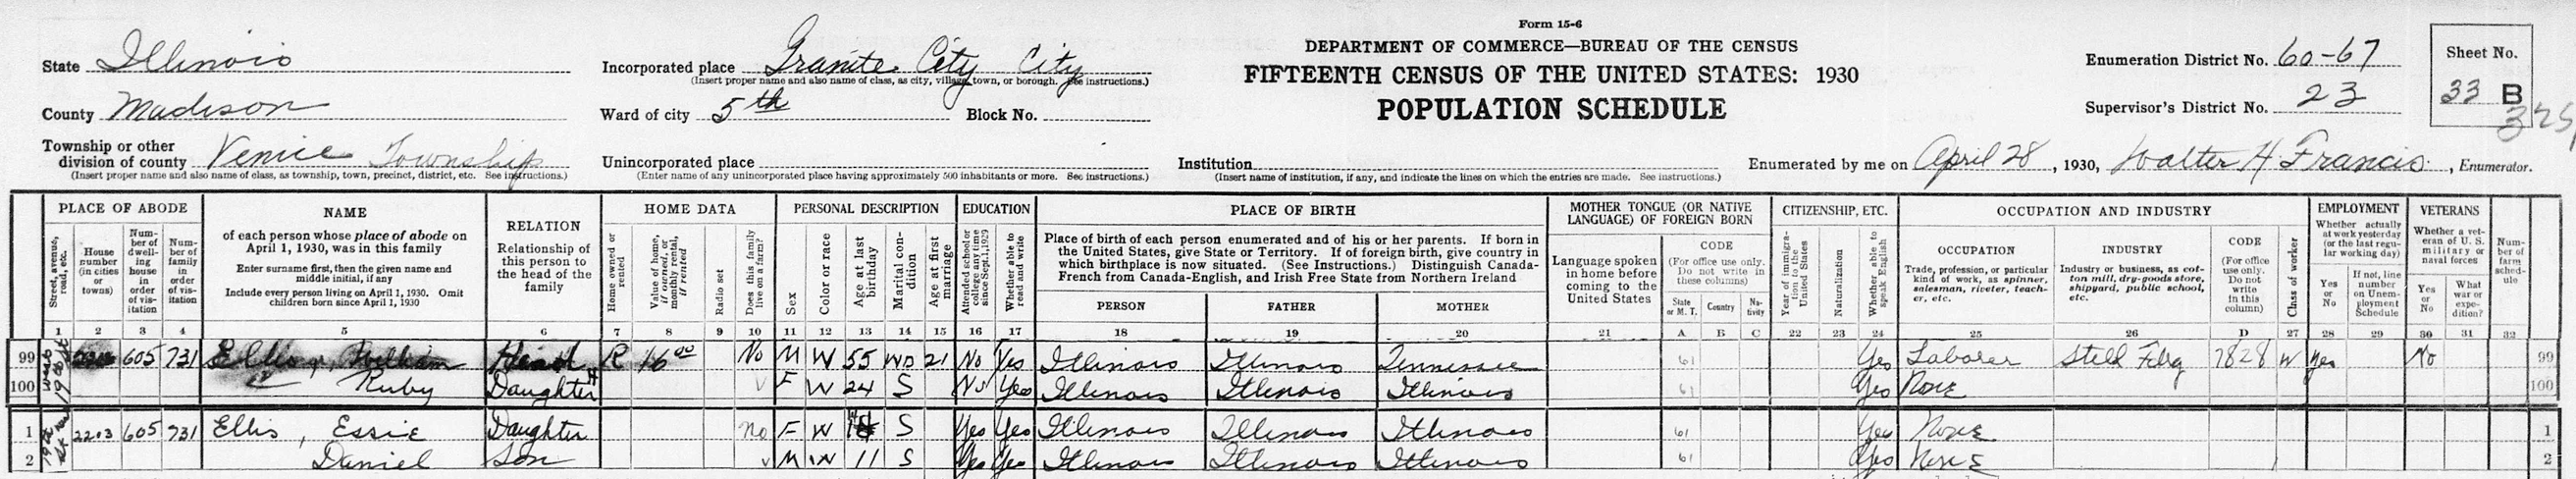 Form 15-6
DEPARTMENT OF COMMERCE—BUREAU OF THE CENSUS
FIFTEENTH CENSUS OF THE UNITED STATES: 1930
POPULATION SCHEDULE
State Illinois
County Madison
Township or other division of county Venice Township
(Insert proper name and also name of class, as township, town, precinct, district, etc. See instructions.)
Incorporated place Granite City City
(Insert proper name and also name of class, as city, village, town, or borough. See instructions.)
Ward of city 5th Block No.
Unincorporated place
(Enter name of any unincorporated place having approximately 500 inhabitants or more. See instructions.)
Institution
(Insert name of institution, if any, and indicate the lines on which the entries are made. See instructions.)
Enumeration District No. 60-67
Supervisor's District No. 23
Sheet No.
33 B
Enumerated by me on April 28, 1930, Walter H. Francis, Enumerator.
PLACE OF ABODE
Street, avenue, road, etc.
House number (in cities or towns)
Number of dwelling house in order of visitation
Number of family in order of visitation
NAME
of each person whose place of abode on April 1, 1930, was in this family
Enter surname first, then the given name and middle initial, if any
Include every person living on April 1, 1930. Omit children born since April 1, 1930
RELATION
Relationship of this person to the head of the family
HOME DATA
Home owned or rented
Value of home, if owned, or monthly rental, if rented
Radio set
Does this family live on a farm?
PERSONAL DESCRIPTION
Sex
Color or race
Age at last birthday
Marital condition
Age at first marriage
EDUCATION
Attended school or college any time since Sept. 1, 1929
Whether able to read and write
PLACE OF BIRTH
Place of birth of each person enumerated and of his or her parents. If born in the United States, give State or Territory. If of foreign birth, give country in which birthplace is now situated. (See Instructions.) Distinguish Canada-French from Canada-English, and Irish Free State from Northern Ireland
PERSON FATHER MOTHER
MOTHER TONGUE (OR NATIVE LANGUAGE) OF FOREIGN BORN
Language spoken in home before coming to the United States
CODE
(For office use only. Do not write in these columns)
State or M. T. Country Nativity
CITIZENSHIP, ETC.
Year of immigration to the United States
Naturalization
Whether able to speak English
OCCUPATION AND INDUSTRY
OCCUPATION
Trade, profession, or particular kind of work, as spinner, salesman, riveter, teacher, etc.
INDUSTRY
Industry or business, as cotton mill, dry-goods store, shipyard, public school, etc.
CODE
(For office use only. Do not write in this column)
Class of worker
EMPLOYMENT
Whether actually at work yesterday (or the last regular working day)
Yes or No
If not, line number on Unemployment Schedule
VETERANS
Whether a veteran of U. S. military or naval forces
Yes or No
What war or expedition?
Number of farm schedule
1 2 3 4 5 6 7 8 9 10 11 12 13 14 15 16 17 18 19 20 21 A B C 22 23 24 25 26 D 27 28 29 30 31 32
99 605 731 Ellis, William Head R 16.00 No M W 55 WD 21 No Yes Illinois Illinois Tennessee 61 Yes Laborer Steel Fdry 7828 W Yes No 99
100 Ruby Daughter F W 24 S No Yes Illinois Illinois Illinois 61 Yes None 100
1 2203 605 731 Ellis, Essie Daughter no F W S Yes Yes Illinois Illinois Illinois 61 Yes None 1
2 Daniel Son M W 11 S Yes Yes Illinois Illinois Illinois 61 Yes None 2